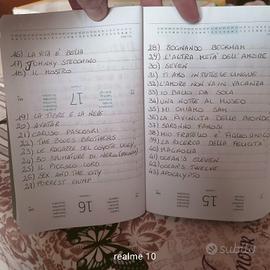 16) LA VITA È BELLA
17) JOHNNY STECCHINO
18) IL MOSTRO
17
19) LA TIGRE E LA NEVE
20) AVATAR
21) CARUSO PASCOSKI
22) THE BLUES BROTHERS
23) LE RAGAZZE DEL COYOTE UGLY
24) 50 SFUMATURE DI NERO
25) IL PICCOLO LORD
26) SEX AND THE CITY
27) FORREST GUMP
16
28) SOGNANDO BECKHAM
29) L'ALTRA METÀ DELL'AMORE
30) SEVEN
31) TI AMO IN TUTTE LE LINGUE
32) L'AMORE NON VA IN VACANZA
33) IO BALLO DA SOLA
34) UNA NOTTE AL MUSEO
35) MI CHIAMO SAM
36) LA RIVINCITA DELLE BIONDE
37) SARANNO FAMOSI
38) MIO FRATELLO È FIGLIO UNICO
39) LA RICERCA DELLA FELICITÀ
40) MAGNOLIA
41) OCEAN'S ELEVEN
42) OCEAN'S TWELVE
43) APOCALYPTO
15
realme 10
Subito